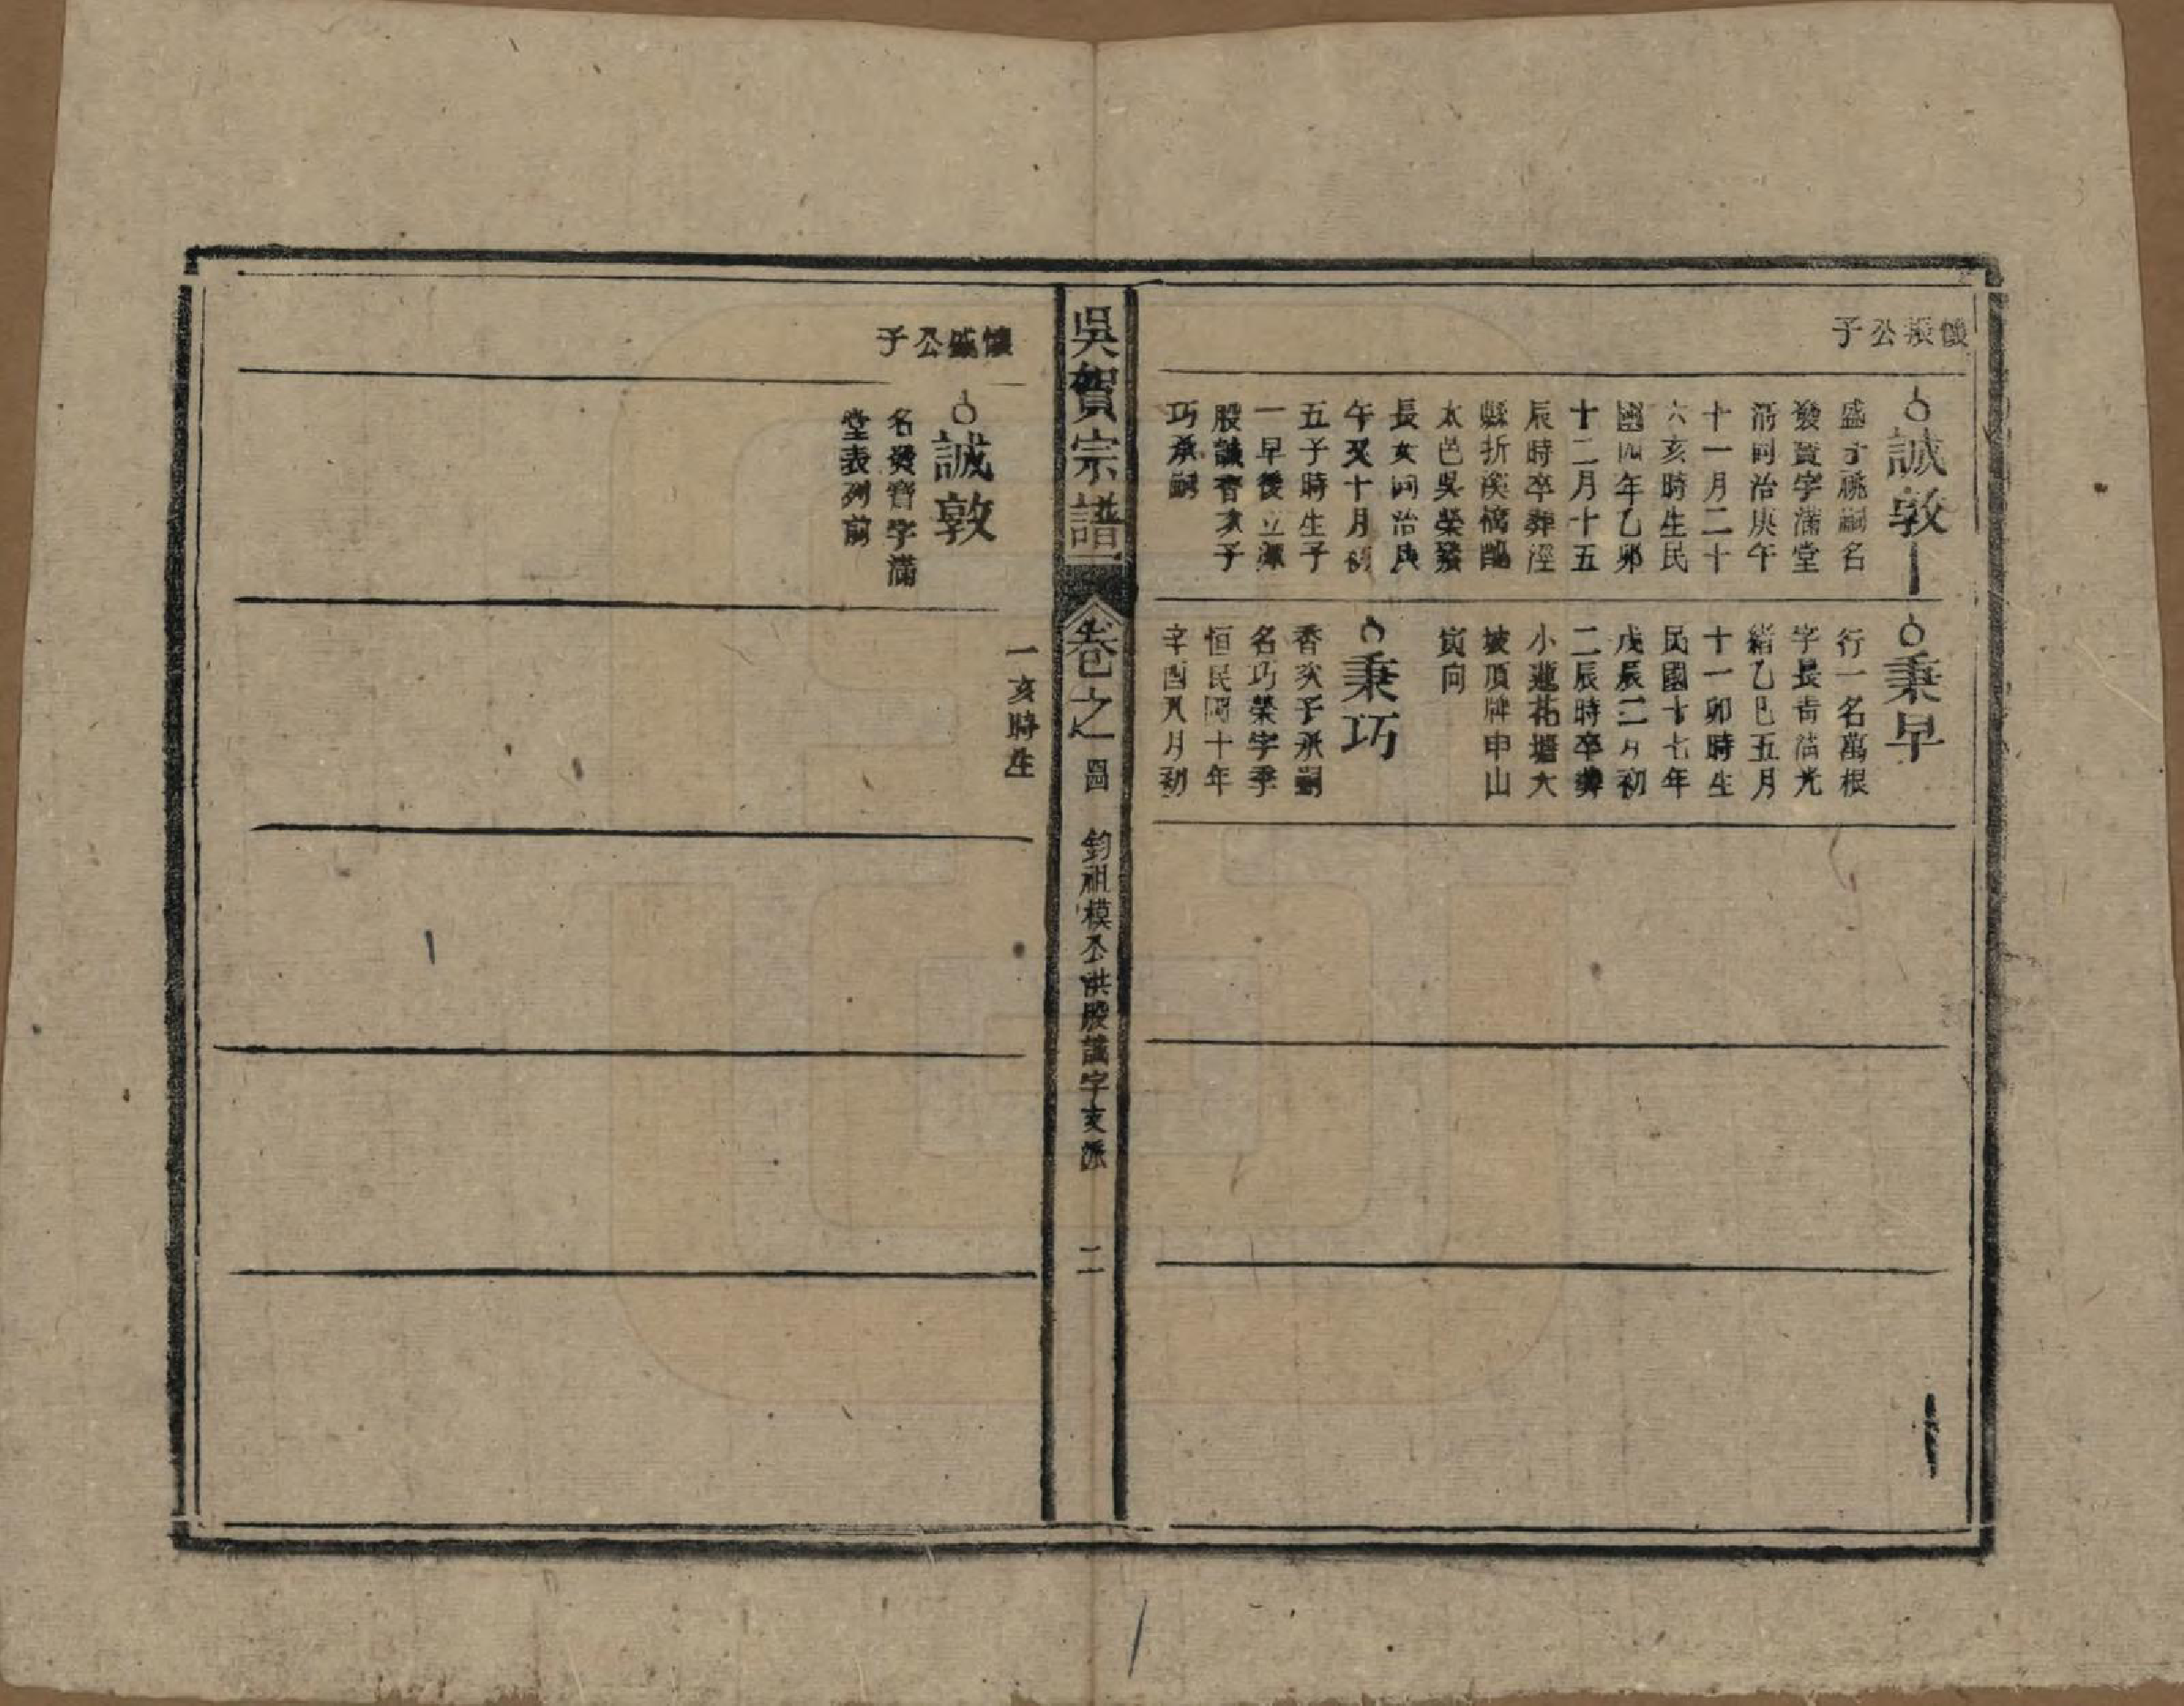 懷振公子
誠敦
盛才祧嗣名
發賚字滿堂
清同治庚午
十一月二十
六亥時生民
國四年乙卯
十二月十五
辰時卒葬涇
縣折溪橋
太邑吳榮發
長女同治庚
午又十月初
五子時生子
一早後立
股誠香次子
巧承嗣
秉早
行一名萬根
字長青清光
緒乙巳五月
十一卯時生
民國十七年
戊辰二月初
二辰時卒葬
小蓮花塘大
坡頂牌申山
寅向
秉巧
香次子承嗣
名巧榮字季
恒民國十年
辛酉八月初
吳賀宗譜
卷之一 圖 鈞祖模公洪股議字支派 二
一亥時生
懷盛公子
誠敦
名發賚字滿
堂表列前